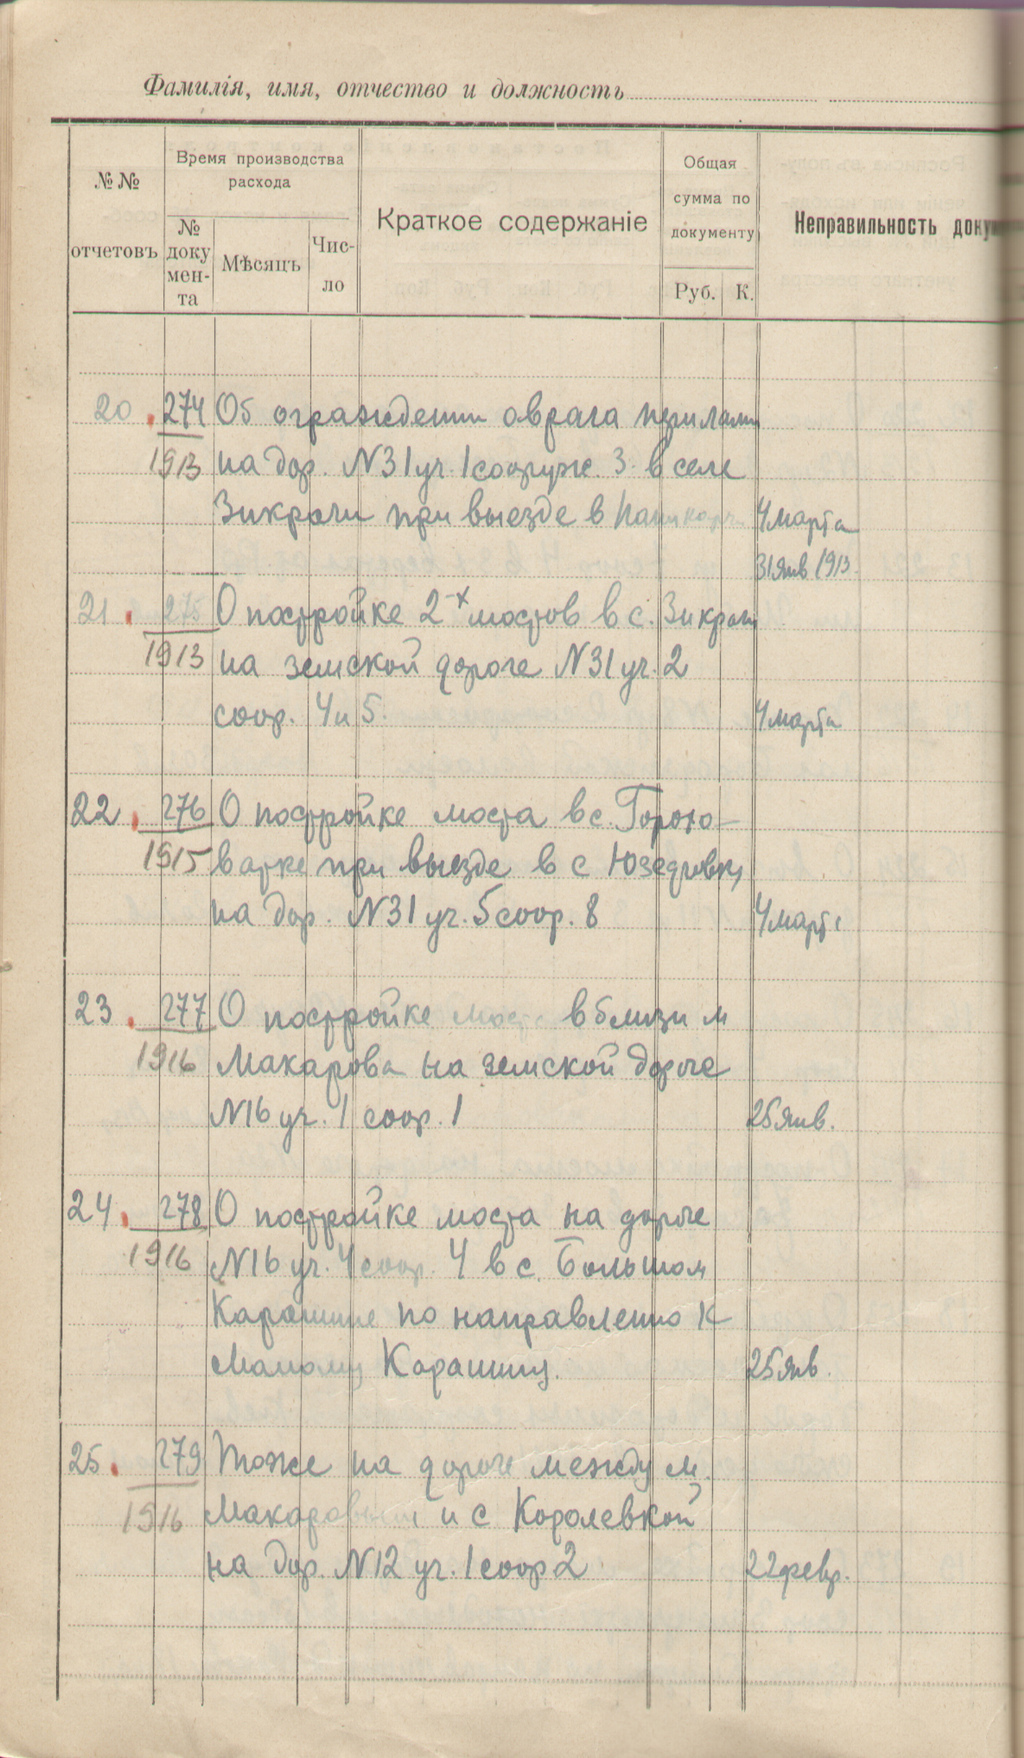 Фамилія, имя, отчество и должность
№№ отчетовъ
Время производства расхода
№ доку мен- та
Мѣсяцъ
Чис- ло
Краткое содержаніе
Общая сумма по документу
Руб. К.
Неправильность доку
20 274 Об ограждении оврага перилами
1913 на дор. N31 уч. 1 сооруж. 3 в селе
Зикрачи при выезде в 4 марта
31 янв 1913
21 275 О постройке 2-х мостов в с. Зикрачи
1913 на земской дороге N31 уч. 2
соор. 4 и 5. 4 марта
22 276 О постройке моста в с. Горохо-
1915 ватке при выезде в с Юзефовку
на дор. N31 уч. 5 соор. 8 4 марта
23 277 О постройке моста вблизи м
1916 Макарова на земской дороге
N16 уч. 1 соор. 1 25 янв.
24 278 О постройке моста на дороге
1916 N16 уч. 4 соор. 4 в с. Большом
Карашине по направлению к
Малому Карашину. 25 янв.
25 279 Тоже на дороге между м.
1916 Макаровым и с Королевкой
на дор. N12 уч. 1 соор 2 22 февр.